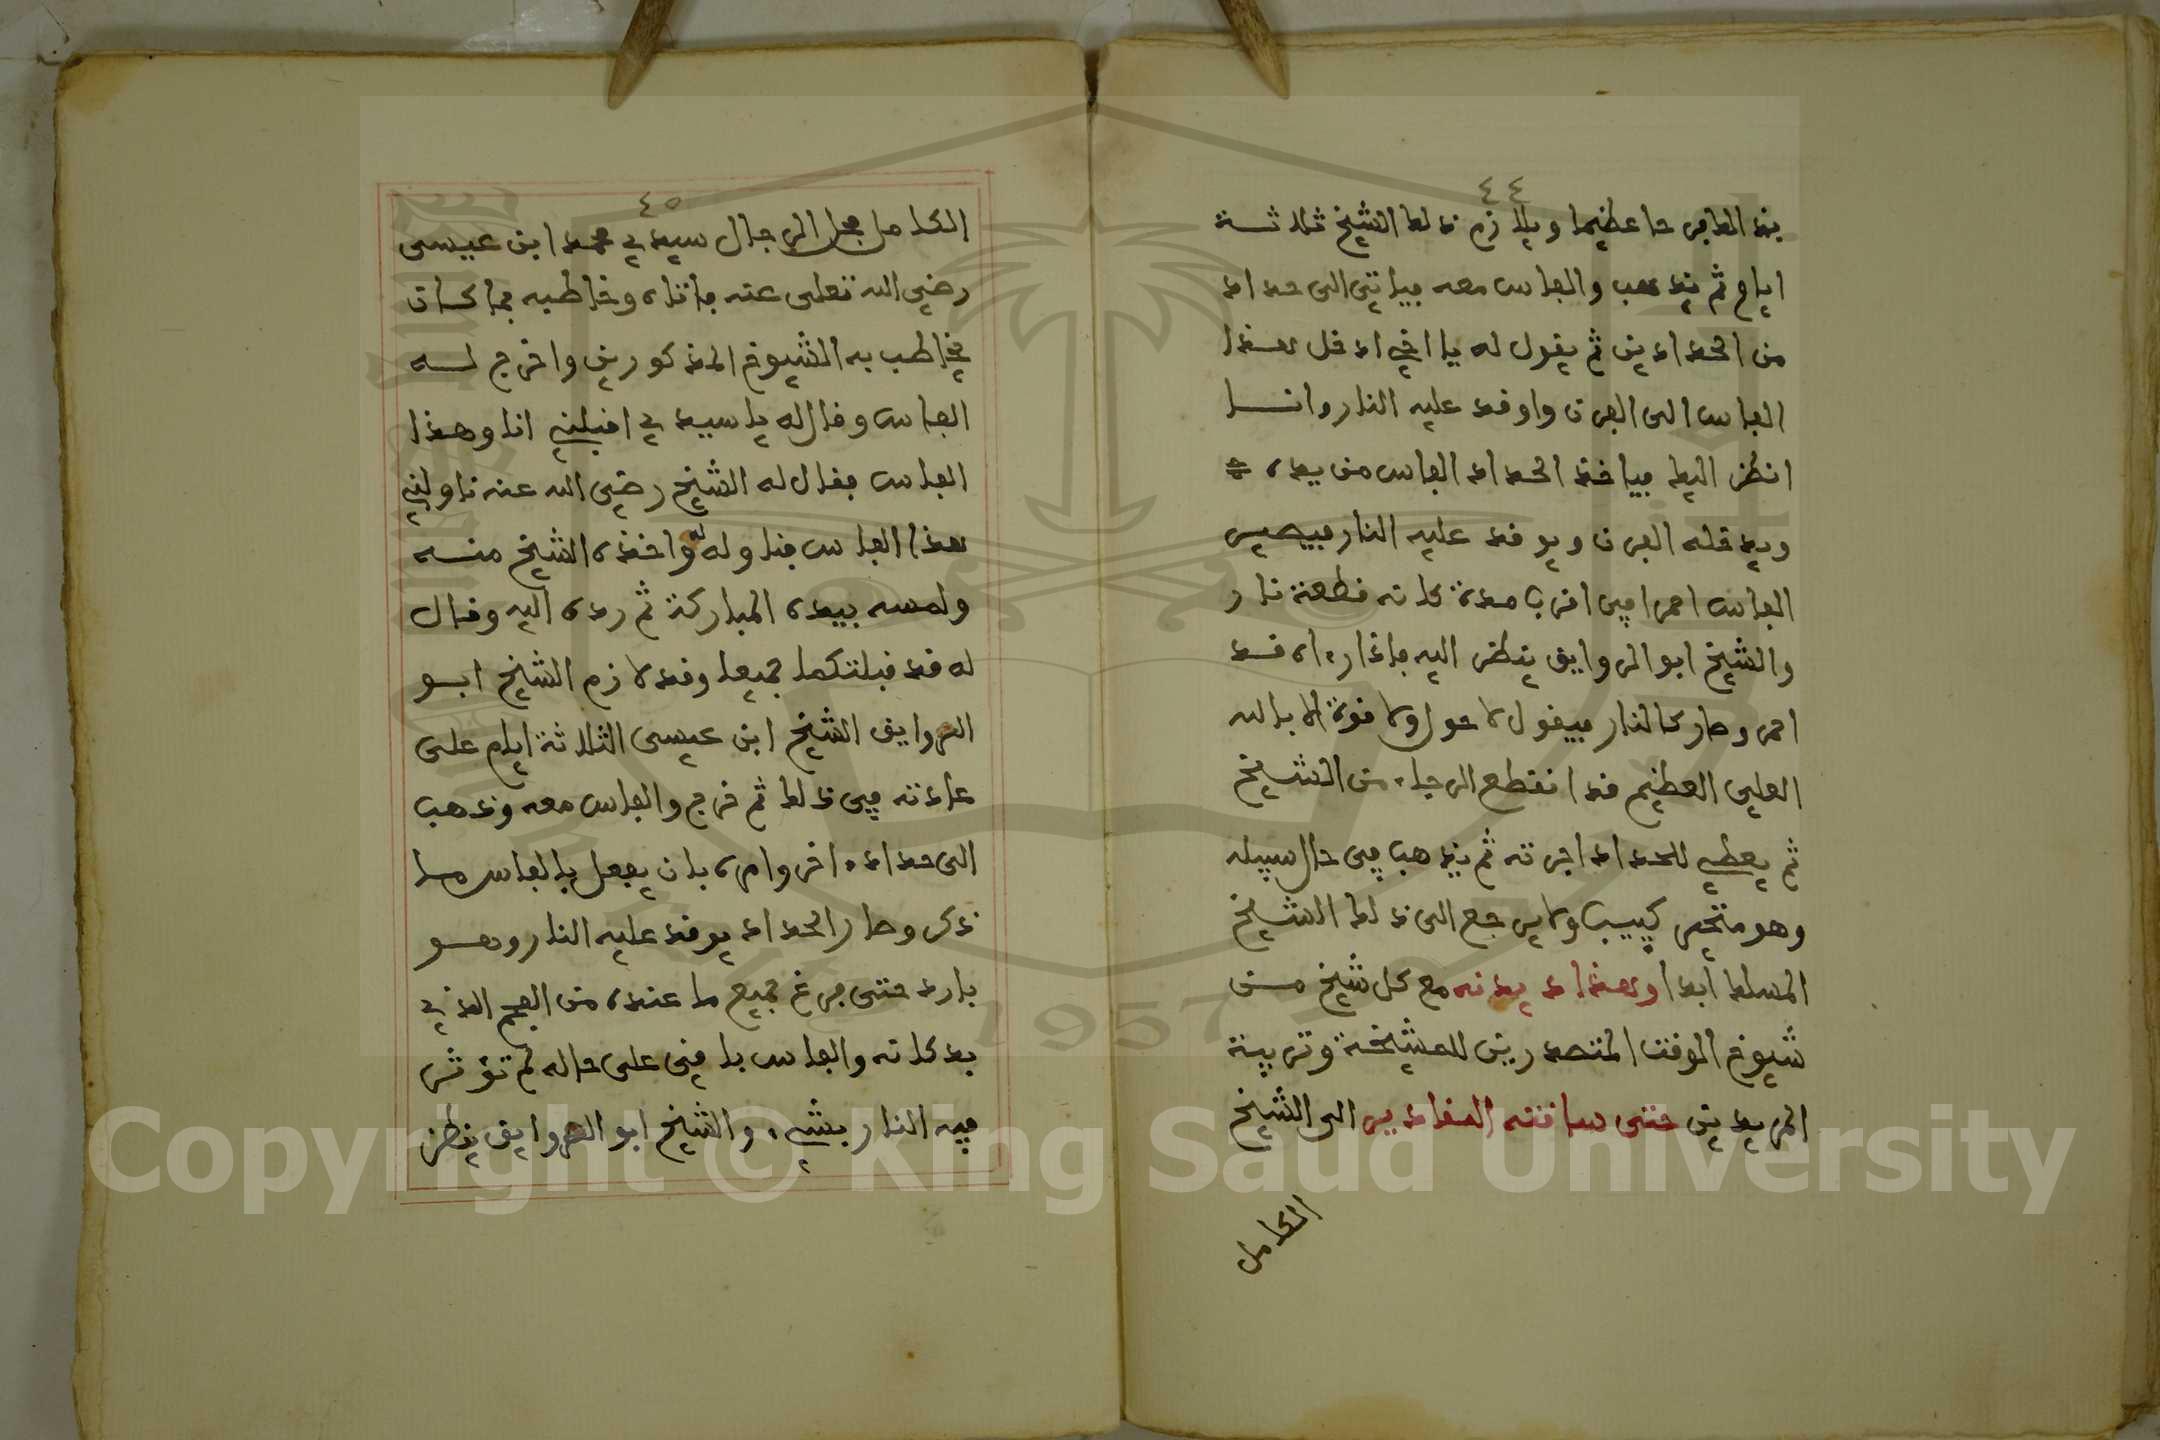 ٤٤
بذالك فرحا عظيما ويلازم ذلك الشيخ ثلاثة
ايام ثم يذهب والفاس معه فياتي الى حداد
من الحدادين ثم يقول له يا اخي ادخل هذا
الفاس الى الفرن واوقد عليه النار وانا
انظر اليك فياخذ الحداد الفاس من يده
ويدخله الفرن ويوقد عليه النار فيصير
الفاس احمرا في اقرب مدة كانه قطعة نار
والشيخ ابو الروايق ينظر اليه فاذا رءاه قد
احمر وصار كالنار فيقول لا حول ولا قوة الا بالله
العلي العظيم قد انقطع الرجاء من الشيخ
ثم يعطي للحداد اجرته ثم يذهب في حال سبيله
وهو متحير كييب ولا يرجع الى ذلك الشيخ
المسلك ابدا وهذا ديدنه مع كل شيخ من
شيوخ الوقت المتصدرين للمشيخة وتربية
المريدين حتى ساقته المقادير الى الشيخ
الكامل
٤٥
الكامل فحل الرجال سيدي محمد ابن عيسى
رضي الله تعلى عنه فاتاه وخاطبه بما كان
يخاطب به الشيوخ المذكورين واخرج له
الفاس وقال له يا سيدي اقبلني انا وهذا
الفاس فقال له الشيخ رضي الله عنه ناولني
هذا الفاس فناوله له واخذه الشيخ منه
ولمسه بيده المباركة ثم رده اليه وقال
له قد قبلتكما جميعا وقد لازم الشيخ ابو
الروايق الشيخ ابن عيسى الثلاثة ايام على
عادته في ذلك ثم خرج والفاس معه وذهب
الى حداد ءاخر وامره بان يفعل بالفاس ما
ذكر وصار الحداد يوقد عليه النار وهو
بارد حتى فرغ جميع ما عنده من الفحم الذي
بدكانه والفاس باقي على حاله لم تؤثر
فيه النار بشيء والشيخ ابو الروايق ينظر
Copyright © King Saud University
1957